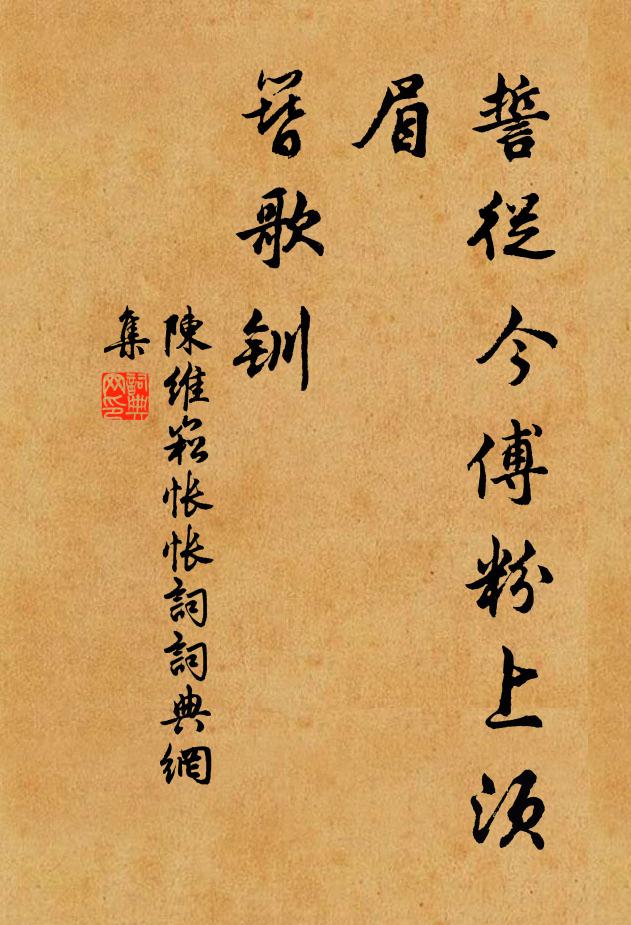 誓從今傅粉上須
眉
簪歌釧
陳維崧悵悵詞詞典網
集
詞典網印